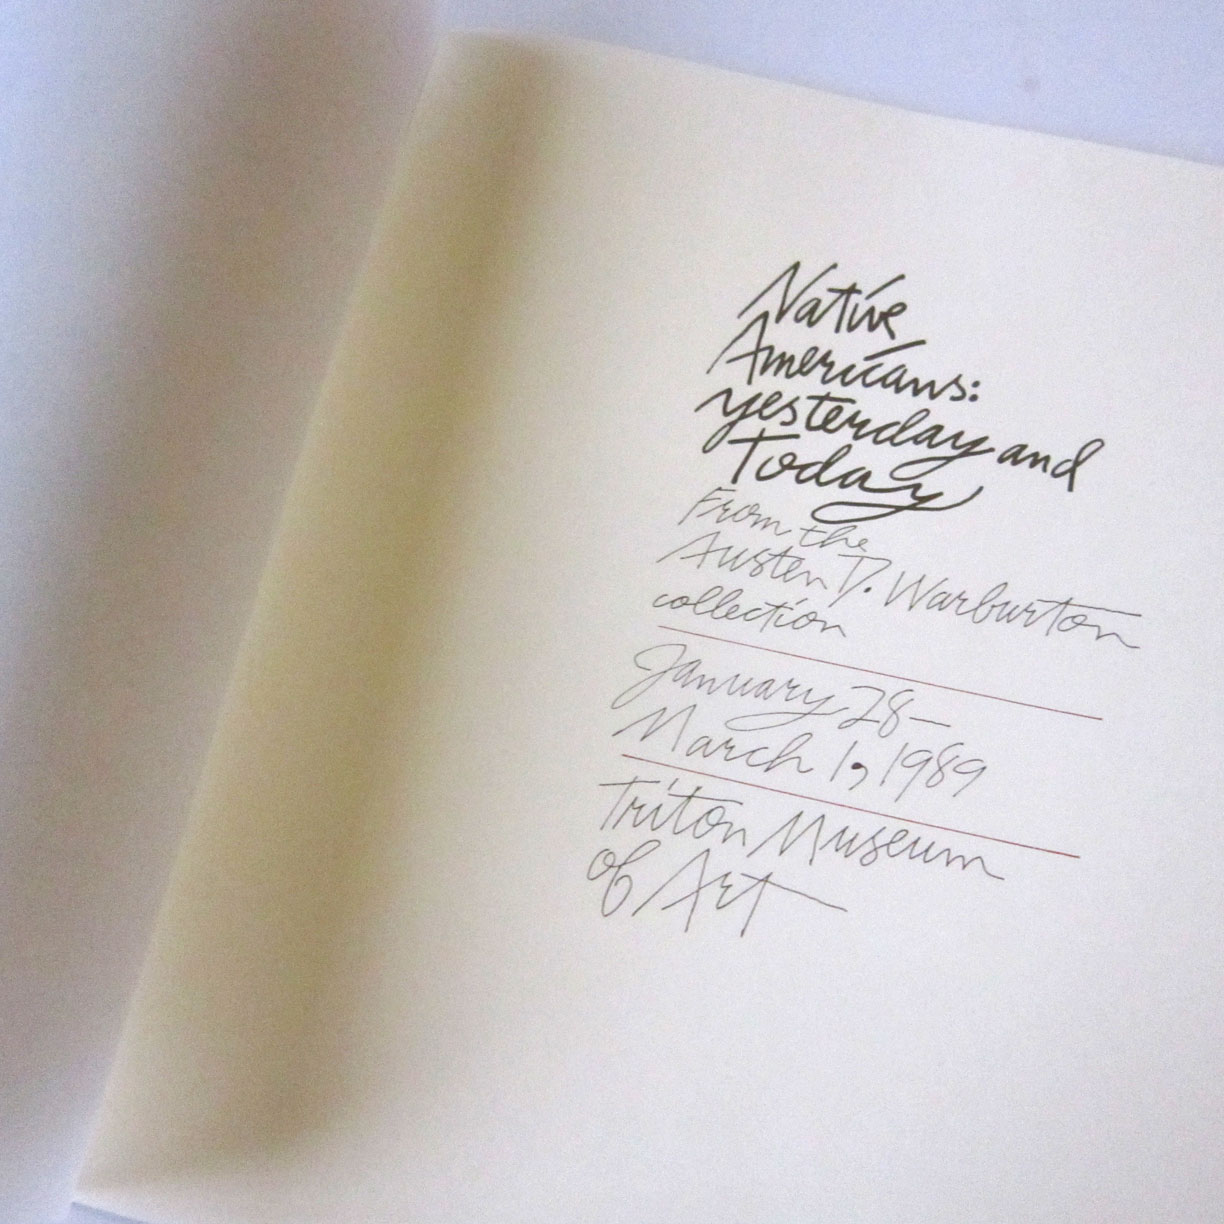 Native
Americans:
yesterday and
Today
From the
Austen D. Warburton
collection
January 28–
March 1, 1989
Triton Museum
of Art